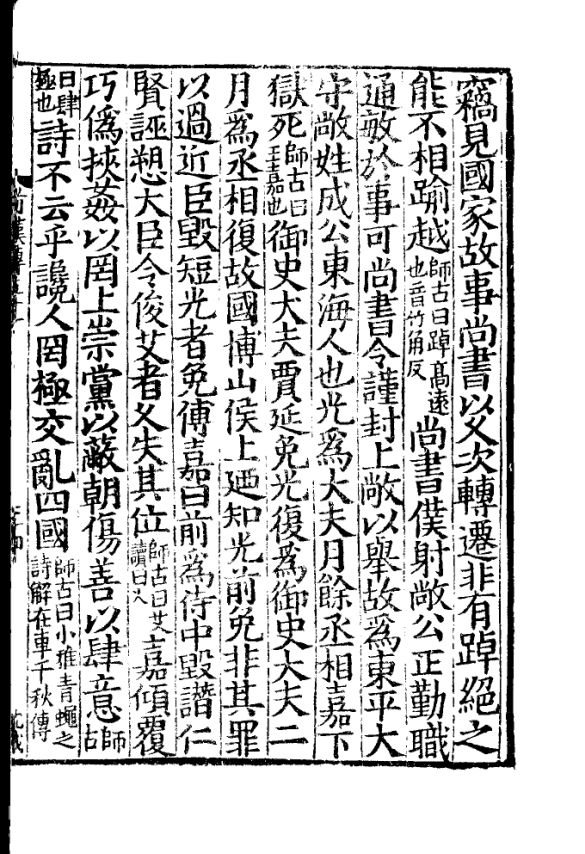 竊見國家故事尚書以久次轉遷非有踔絕之
能不相踰越師古曰踔高遠也音竹角反尚書僕射敞公正勤職
通敏於事可尚書令謹封上敞以舉故爲東平太
守敞姓成公東海人也光爲大夫月餘丞相嘉下
獄死師古曰王嘉也御史大夫賈延免光復爲御史大夫二
月爲丞相復故國博山侯上廼知光前免非其罪
以過近臣毀短光者免傅嘉曰前爲侍中毀譖仁
賢誣愬大臣令俊艾者久失其位師古曰艾讀曰乂嘉傾覆
巧僞挾姦以罔上崇黨以蔽朝傷善以肆意師古
曰肆極也詩不云乎讒人罔極交亂四國師古曰小雅青蠅之詩解在車千秋傳